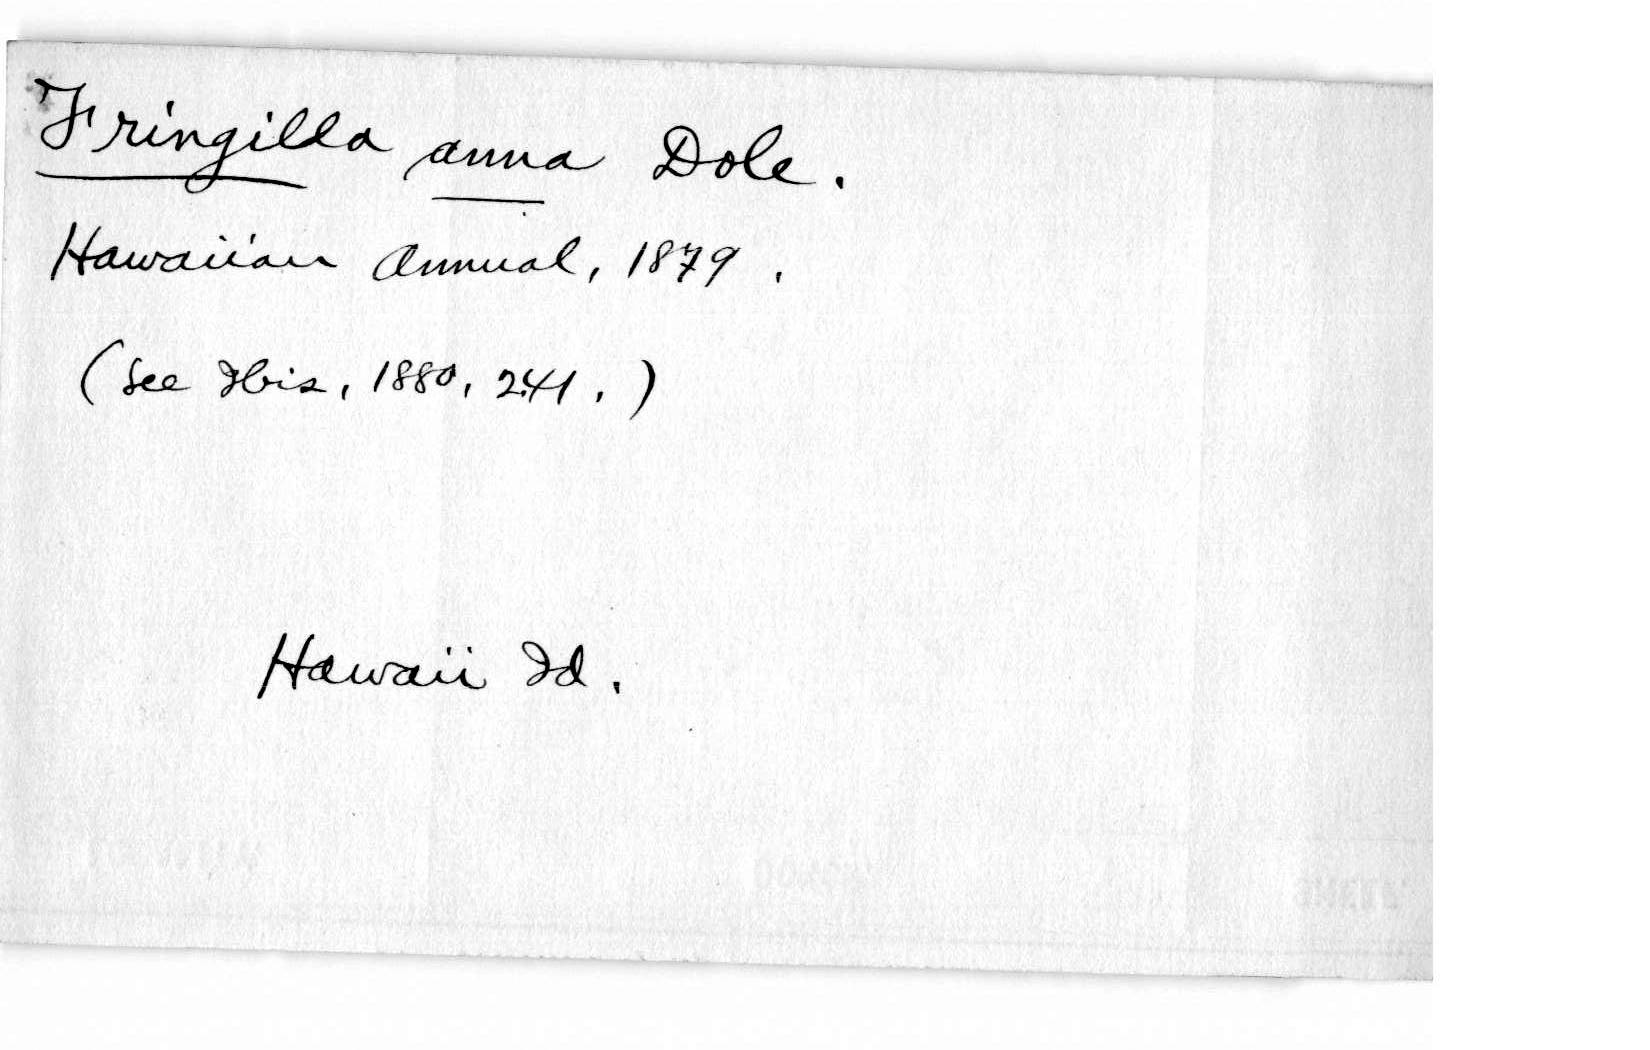 Fringilla anna Dole.
Hawaiian Annual, 1879.
(See Ibis, 1880, 241.)
Hawaii Id.